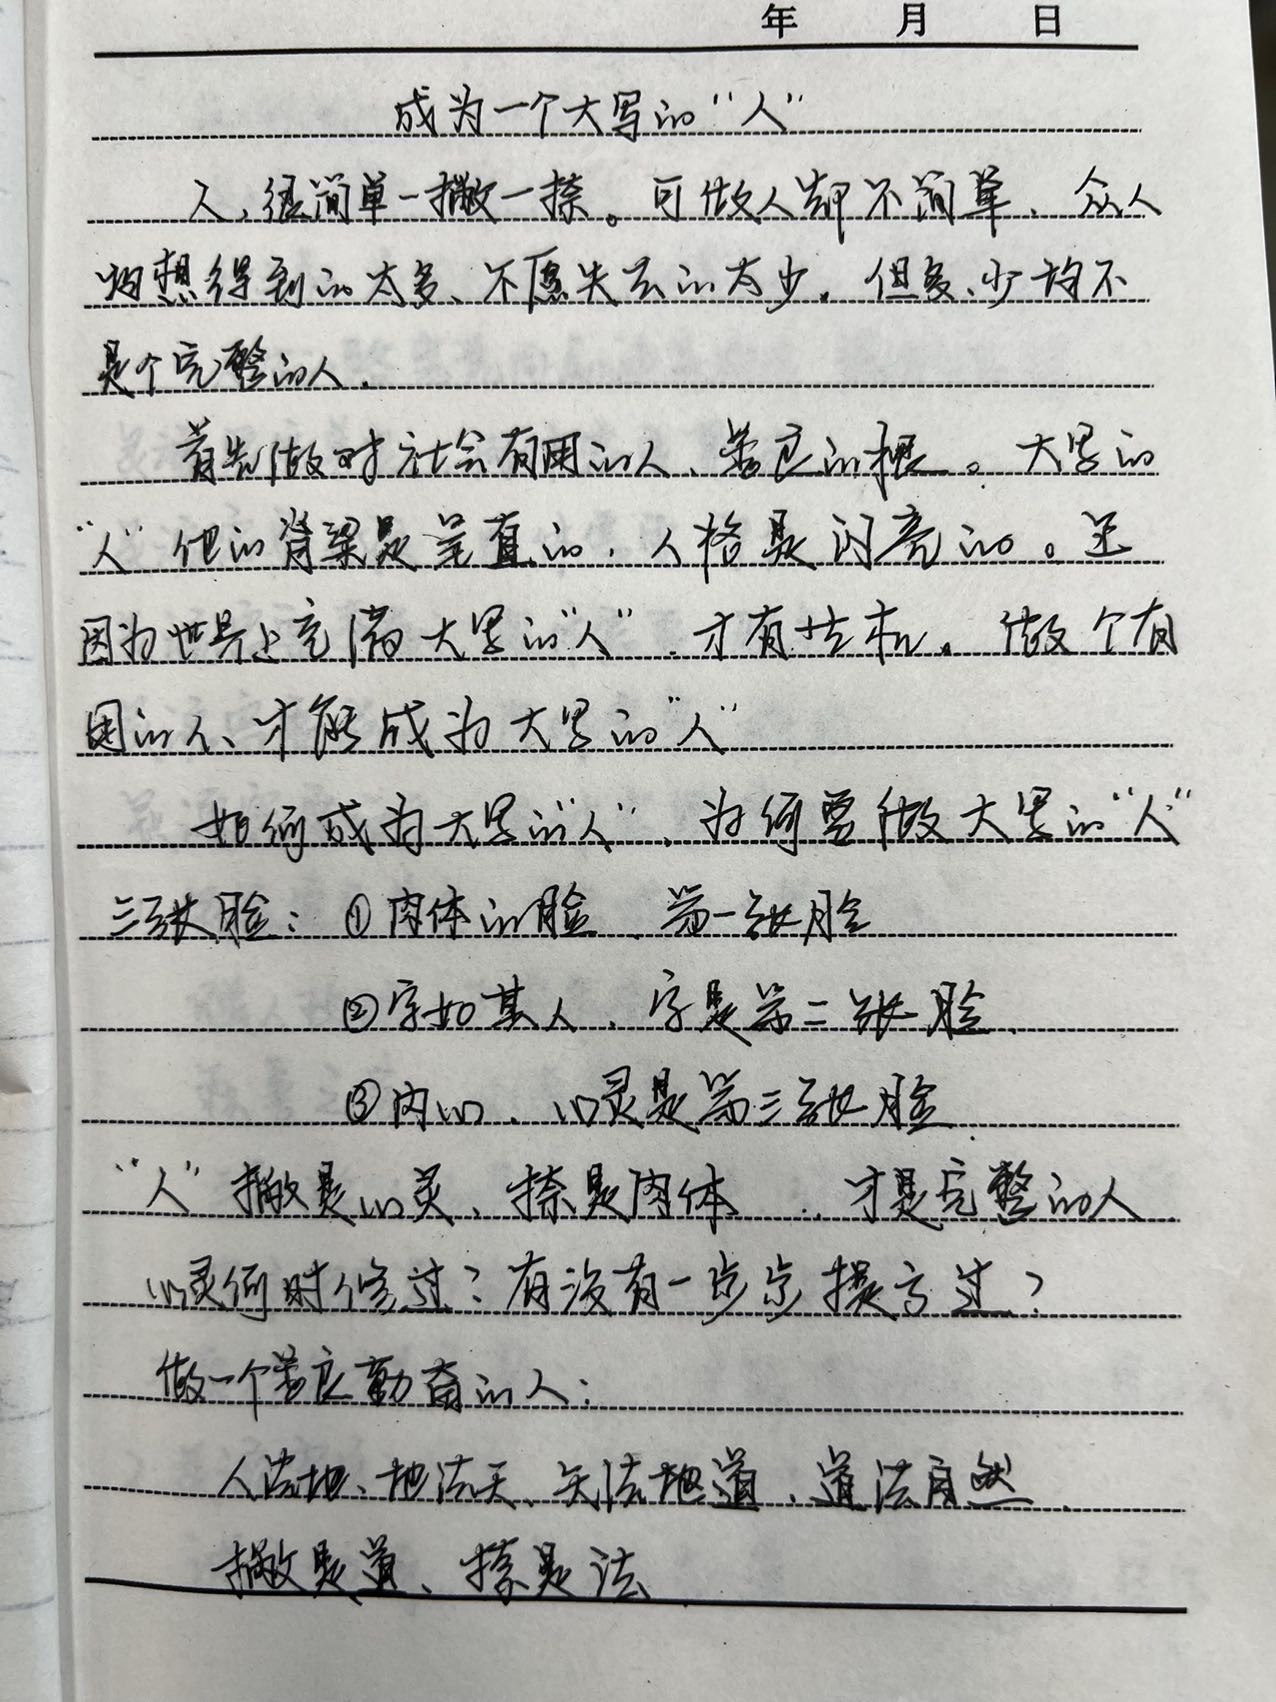 年 月 日
成为一个大写的“人”
人，很简单一撇一捺。可做人却不简单，众人
均想得到的太多、不愿失去的太少。但多、少均不
是个完整的人。
首先做对社会有用的人、善良的根。大写的
“人”他的脊梁是笔直的，人格是闪亮的。正
因为世界上充满大写的“人”，才有生机。做个有
用的人、才能成为大写的“人”
如何成为大写的“人”、为何要做大写的“人”
三张脸：①肉体的脸、第一张脸
②字如其人、字是第二张脸、
③内心、心灵是第三张脸、
“人”撇是心灵、捺是肉体、才是完整的人
心灵何时修过？有没有一步步提高过？
做一个善良勤奋的人：
人法地、地法天、天法地道、道法自然、
撇是道、捺是法